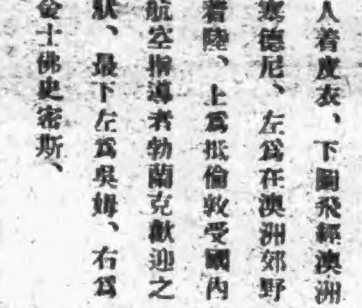 人着皮衣、下圖飛經澳洲
寒德尼、左爲在澳洲郊野
着陸、上爲抵倫敦受國內
航空指導者勃蘭克歡迎之
狀、最下左爲吳姆、右爲
金士佛史密斯、